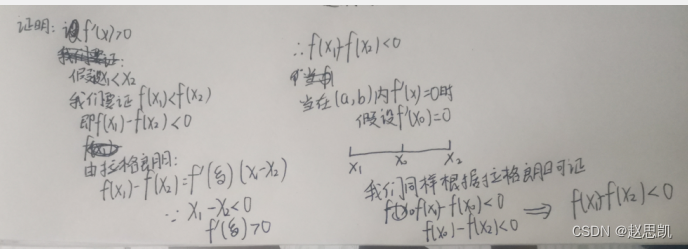 证明: 设f'(x)>0
证:
假设x₁<x₂
我们要证f(x₁)<f(x₂)
即f(x₁)-f(x₂)<0
由拉格朗日:
f(x₁)-f(x₂)=f'(ξ)(x₁-x₂)
∵ x₁-x₂<0
f'(ξ)>0
∴f(x₁)-f(x₂)<0
当在(a,b)内f'(x)=0时
假设f'(x₀)=0
x₁ x₀ x₂
我们同样根据拉格朗日可证
f(x₁)-f(x₀)<0
f(x₀)-f(x₂)<0 ⟹ f(x₁)-f(x₂)<0
CSDN @赵思凯